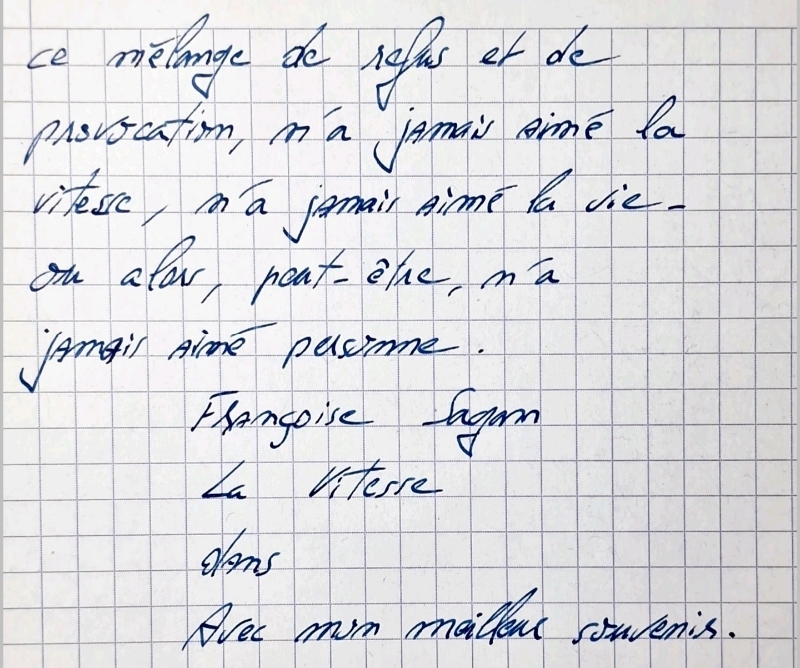 ce mélange de refus et de
provocation, n'a jamais aimé la
vitesse, n'a jamais aimé la vie -
ou alors, peut-être, n'a
jamais aimé personne.
Françoise Sagan
La Vitesse
dans
Avec mon meilleur souvenir.